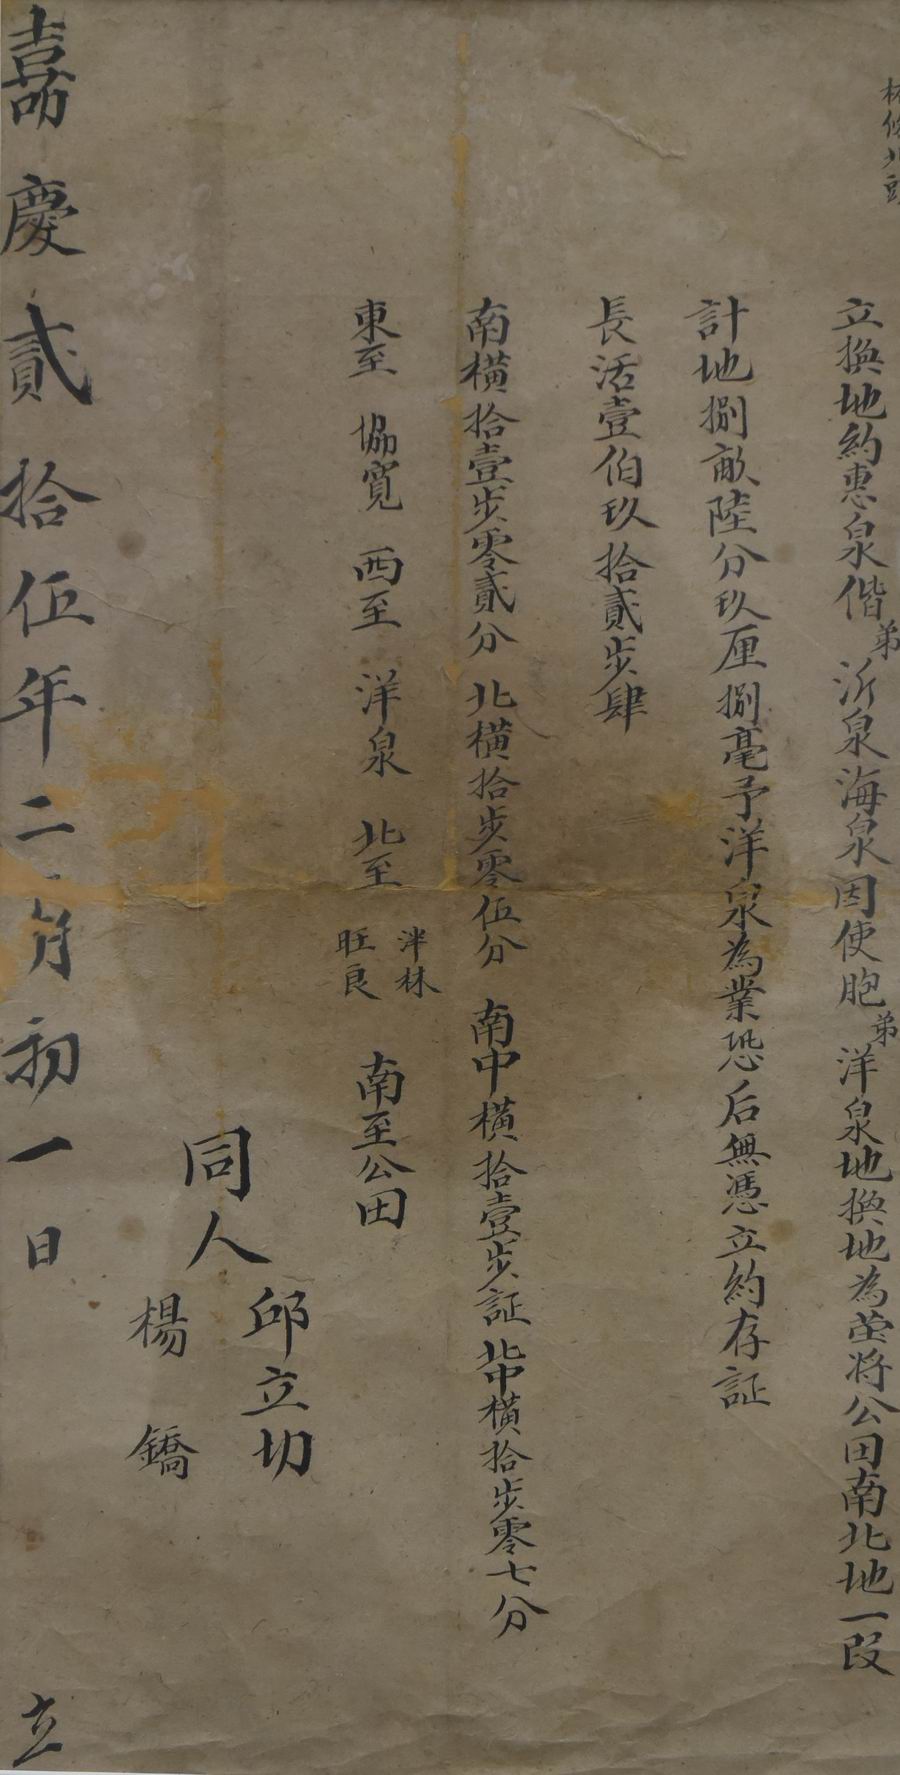 林 北頭
立換地約惠泉偕弟沂泉海泉因使胞弟洋泉地換地為塋將公田南北地一段
計地捌畝陸分玖厘捌毫予洋泉為業恐后無憑立約存証
長活壹伯玖拾貳步肆
南橫拾壹步零貳分 北橫拾步零伍分 南中橫拾壹步証北中橫拾步零七分
東至 協寬 西至 洋泉 北至 泮林 旺良 南至公田
同人 邱立切 楊鐈
嘉慶貳拾伍年二月初一日 立